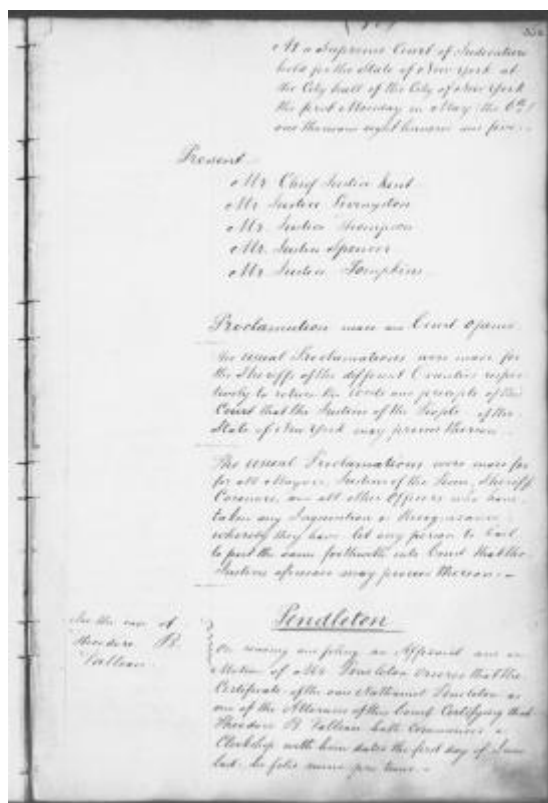 At a Supreme Court of Judicature
held for the State of New York at
the City hall of the City of New York
the first Monday in May (the 6th)
one thousand eight hundred and five
Present
Mr Chief Justice Kent
Mr Justice Livingston
Mr Justice Thompson
Mr Justice Spencer
Mr Justice Tompkins
Proclamation made and Court opened
The usual Proclamations were made for
the Sheriffs of the different Counties respec
tively to return the writs and precepts of this
Court that the Justices of the People of the
State of New York may proceed thereon
The usual Proclamations were made for
for all Mayors, Justices of the Peace, Sheriffs
Coroners, and all other Officers who have
taken any Inquisition or Recognizance
whereby they have let any person to bail
to put the same forthwith into Court that the
Justices aforesaid may proceed thereon
In the case of
Theodore B.
Valleau
Pendleton
On reading and filing an Affidavit and on
Motion of Mr Pendleton Ordered that the
Certificate of the said Nathaniel Pendleton as
one of the Attornies of this Court Certifying that
Theodore B. Valleau hath Commenced a
Clerkship with him dated the first day of June
last be filed nunc pro tunc